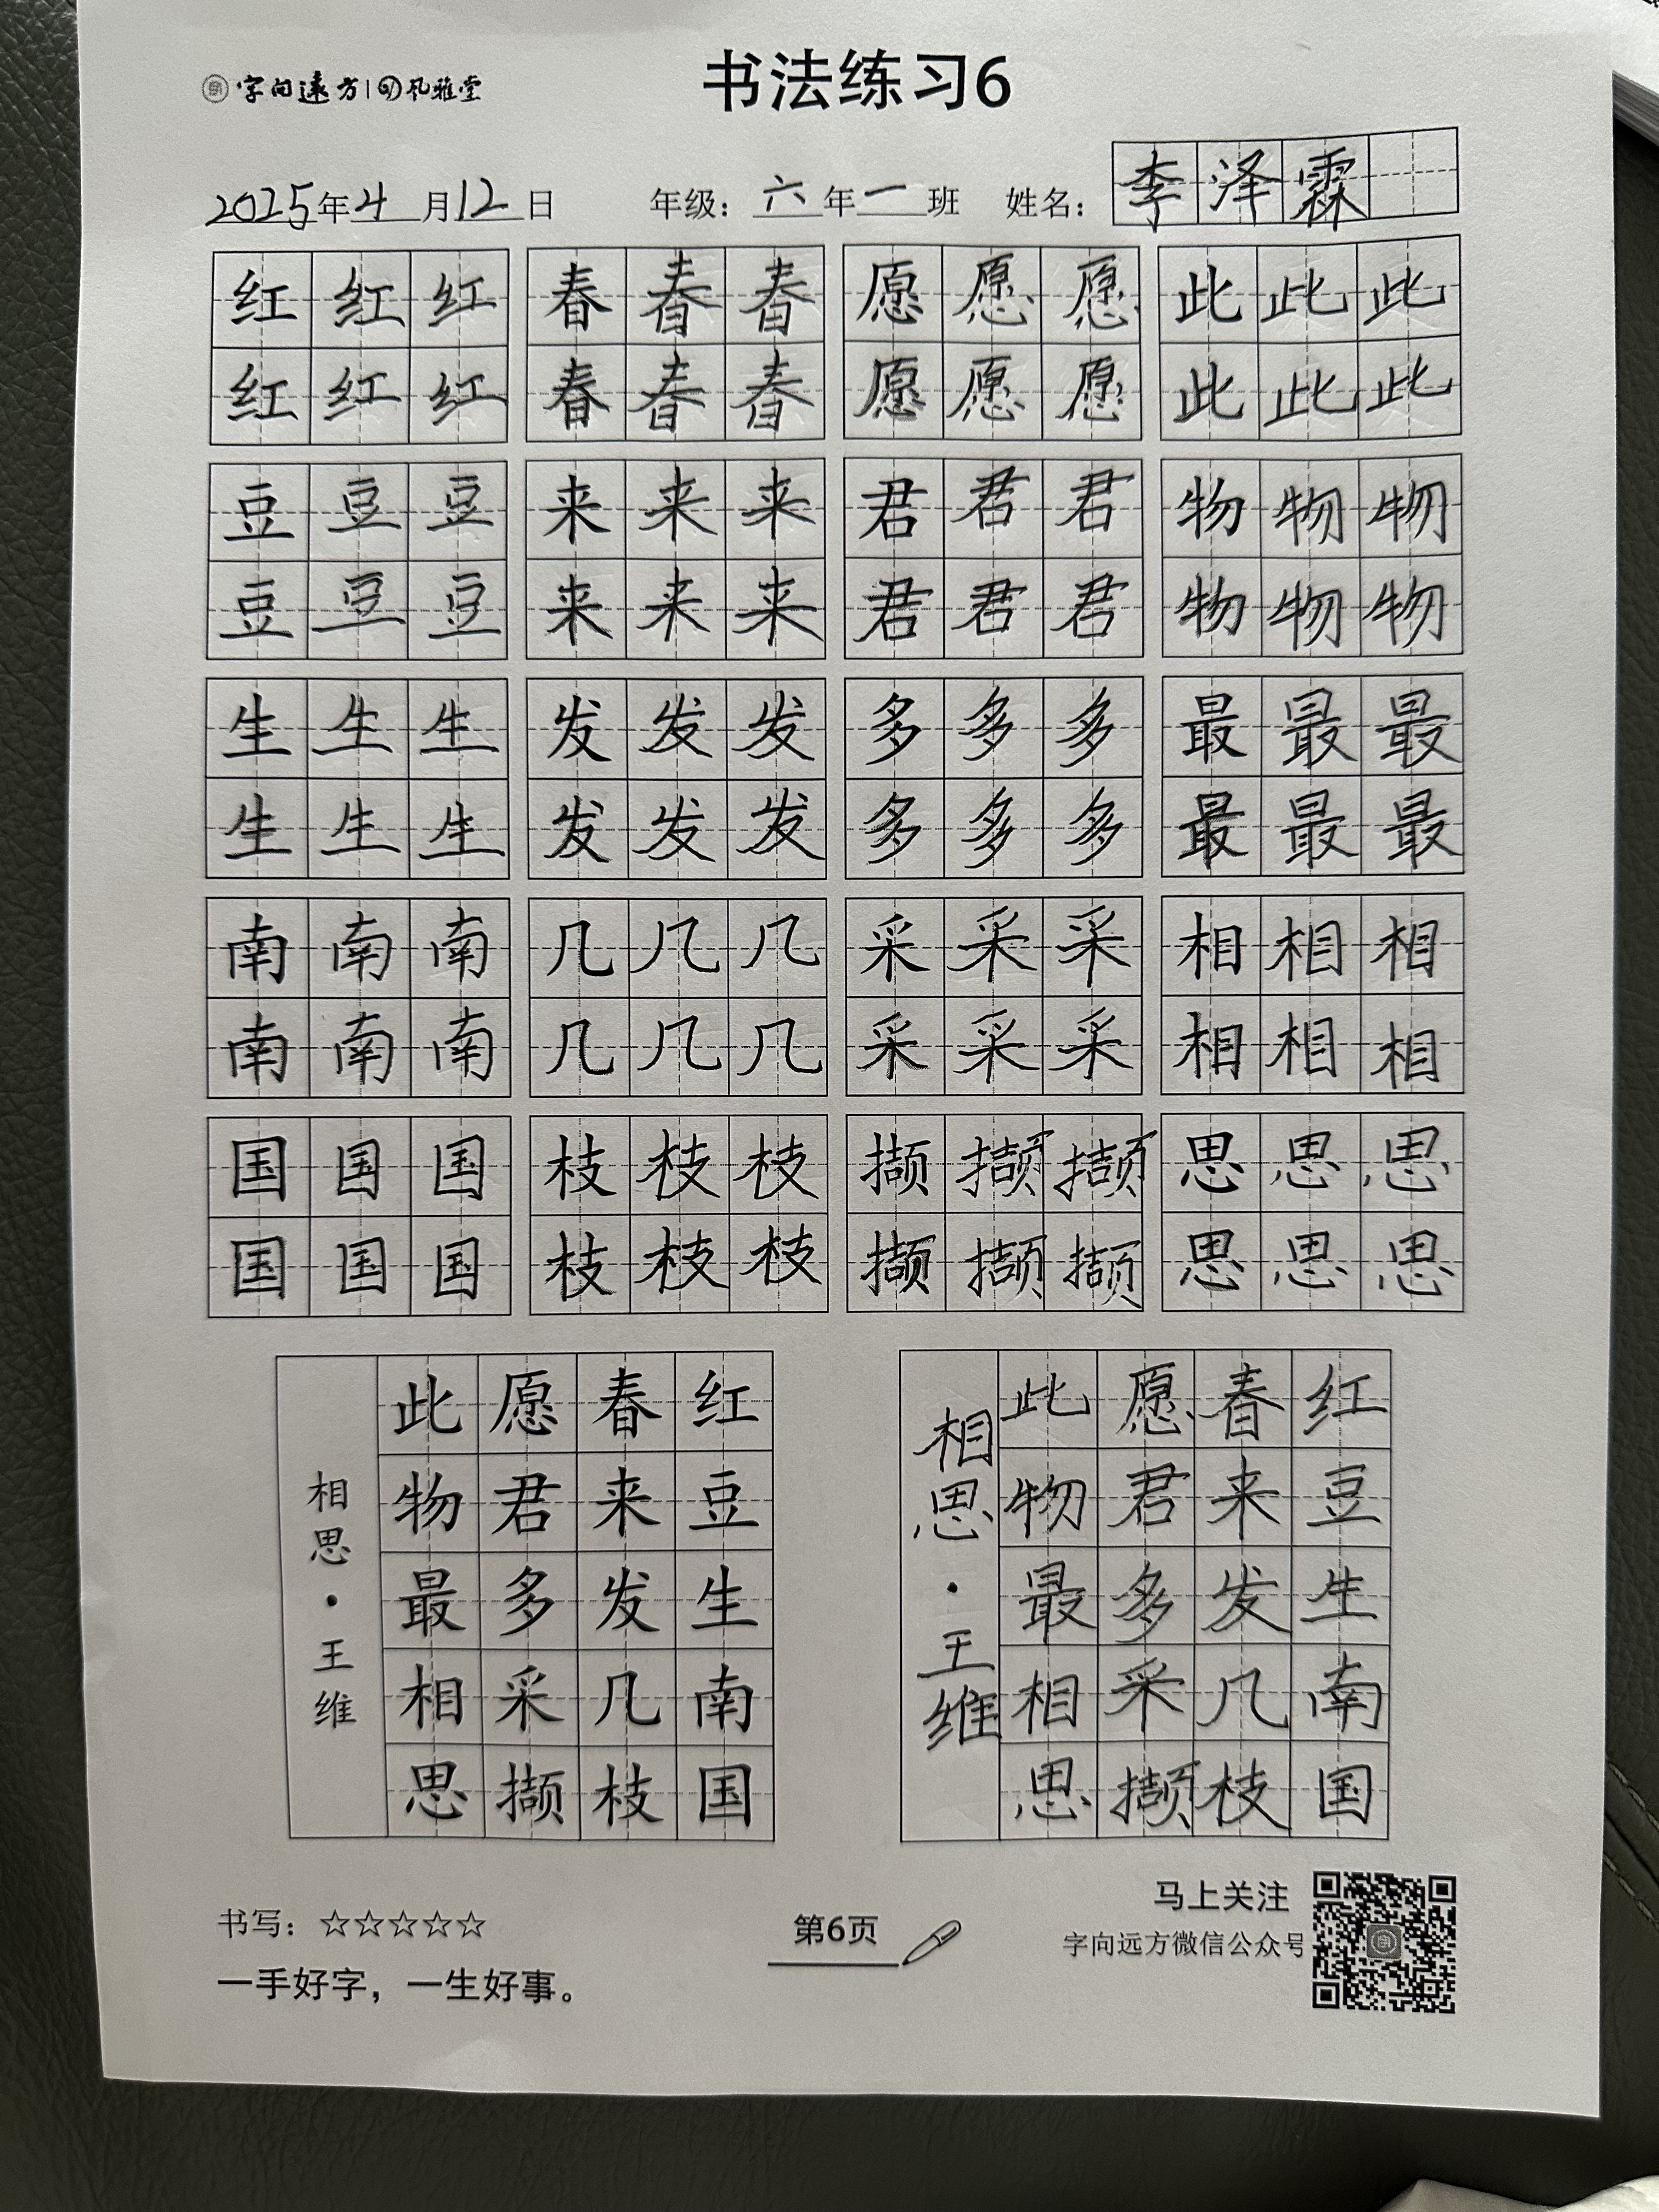 字向远方 风雅堂
书法练习6
2025年4月12日 年级：六年一班 姓名：李泽霖
红红红 春春春 愿愿愿 此此此
红红红 春春春 愿愿愿 此此此
豆豆豆 来来来 君君君 物物物
豆豆豆 来来来 君君君 物物物
生生生 发发发 多多多 最最最
生生生 发发发 多多多 最最最
南南南 几几几 采采采 相相相
南南南 几几几 采采采 相相相
国国国 枝枝枝 撷撷撷 思思思
国国国 枝枝枝 撷撷撷 思思思
红豆生南国
春来发几枝
愿君多采撷
此物最相思
相思·王维
红豆生南国
春来发几枝
愿君多采撷
此物最相思
相思·王维
书写：☆☆☆☆☆
一手好字，一生好事。
第6页
马上关注
字向远方微信公众号